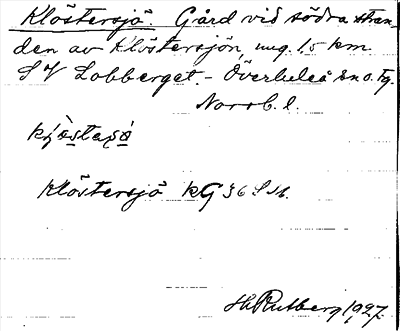 Klöstersjö. Gård vid södra stran-
den av Klöstersjön, ung. 1,5 km
SV Lobberget. - Överluleå sn o. tg.
Norrb. l.
Klöstersjö kG 36 S.M.
H. Rutberg 1927.